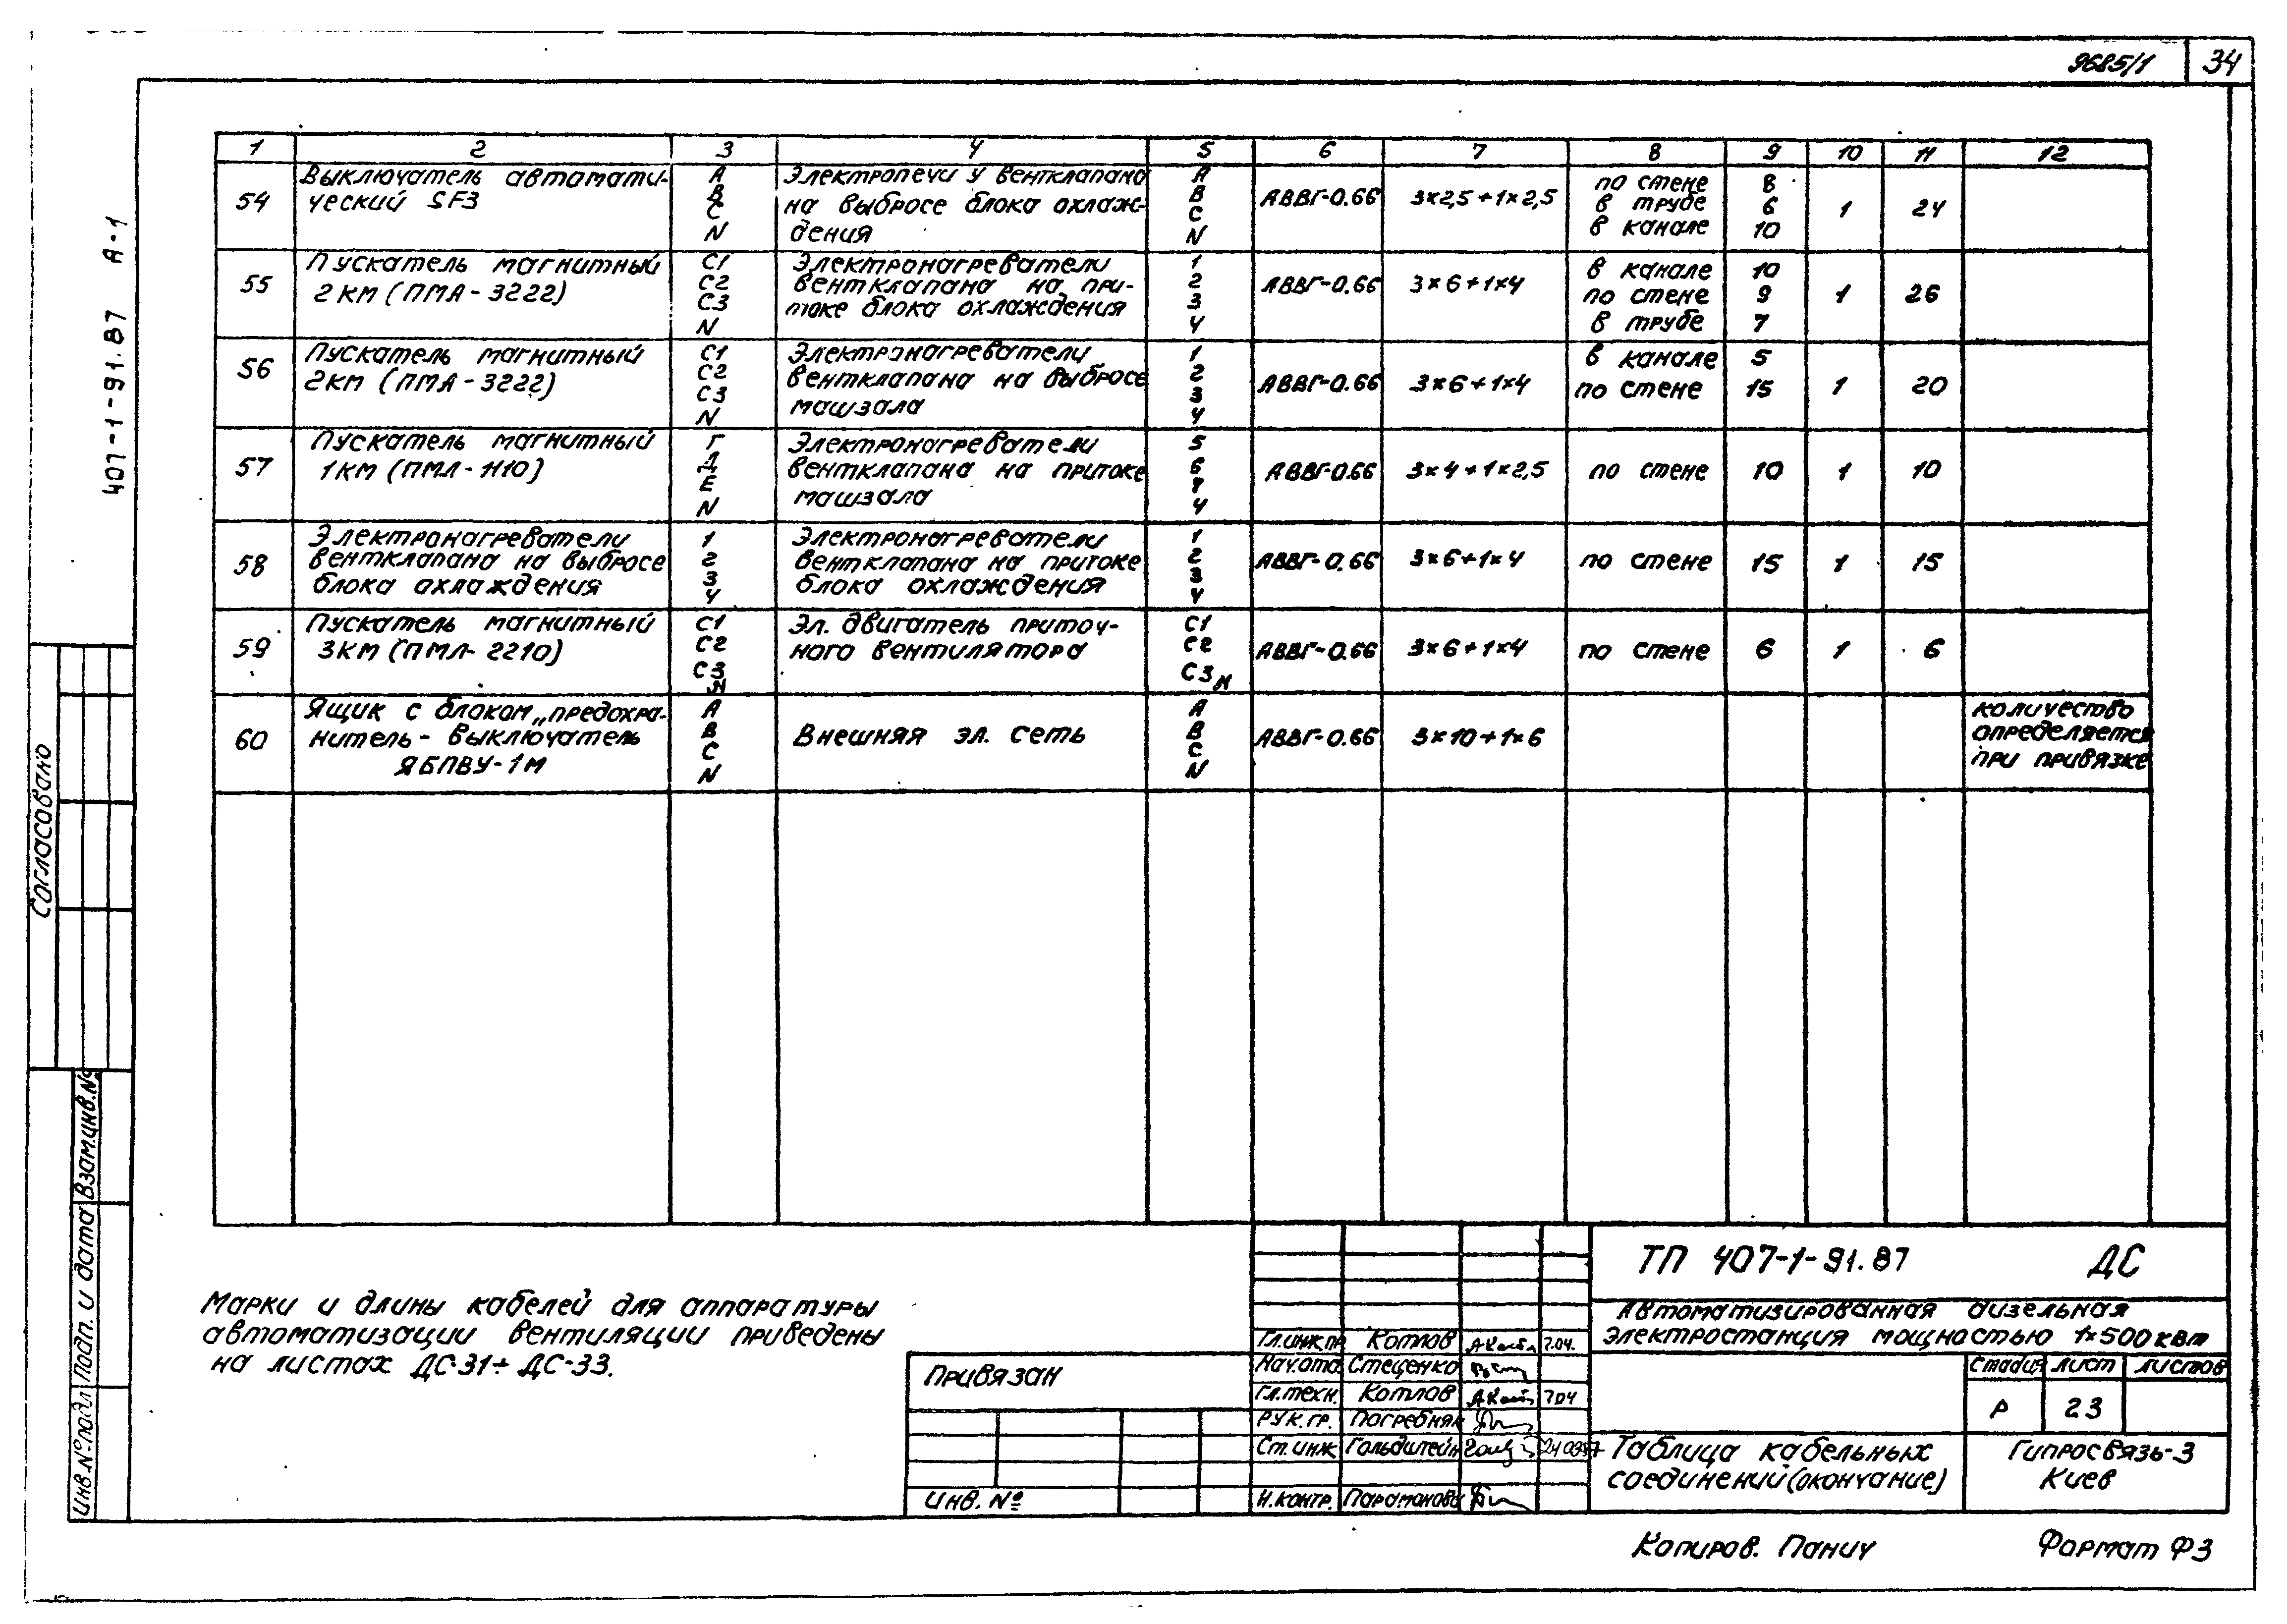 9685/1 34
407-1-91.87 А-1
1 2 3 4 5 6 7 8 9 10 11 12
54 Выключатель автомати-
ческий SF3
А
В
С
N
Электропечи у вентклапана
на выбросе блока охлаж-
дения
А
В
С
N
АВВГ-0.66 3×2,5+1×2,5
по стене 8
в трубе 6
в канале 10
1 24
55 Пускатель магнитный
2КМ (ПМА-3222)
С1
С2
С3
N
Электронагреватели
вентклапана на при-
токе блока охлаждения
1
2
3
4
АВВГ-0.66 3×6+1×4
в канале 10
по стене 9
в трубе 7
1 26
56 Пускатель магнитный
2КМ (ПМА-3222)
С1
С2
С3
N
Электронагреватели
вентклапана на выбросе
машзала
1
2
3
4
АВВГ-0.66 3×6+1×4
в канале 5
по стене 15
1 20
57 Пускатель магнитный
1КМ (ПМЛ-1110)
Г
Д
Е
N
Электронагреватели
вентклапана на притоке
машзала
5
6
7
4
АВВГ-0.66 3×4+1×2,5 по стене 10 1 10
58 Электронагреватели
вентклапана на выбросе
блока охлаждения
1
2
3
4
Электронагреватели
вентклапана на притоке
блока охлаждения
1
2
3
4
АВВГ-0.66 3×6+1×4 по стене 15 1 15
59 Пускатель магнитный
3КМ (ПМЛ-2210)
С1
С2
С3
N
Эл. двигатель приточ-
ного вентилятора
С1
С2
С3 N
АВВГ-0.66 3×6+1×4 по стене 6 1 6
60 Ящик с блоком „предохра-
нитель- выключатель
ЯБПВУ-1М
А
В
С
N
Внешняя эл. сеть
А
В
С
N
АВВГ-0.66 3×10+1×6
количество
определяется
при привязке
Согласовано
Взам.инв.№
Подп. и дата
Инв.№ подл.
Марки и длины кабелей для аппаратуры
автоматизации вентиляции приведены
на листах ДС-31÷ДС-33.
Привязан
Инв. №
Гл.инж.пр. Котлов 7.04.
Нач.отд. Стеценко
Гл.техн. Котлов 7.04
Рук.гр. Погребняк
Ст.инж Гольдштейн
Н.контр. Парамонова
ТП 407-1-91.87 ДС
Автоматизированная дизельная
электростанция мощностью 1×500кВт
Стадия Лист Листов
Р 23
Таблица кабельных
соединений (окончание)
Гипросвязь-3
Киев
Копиров. Панич Формат Ф3